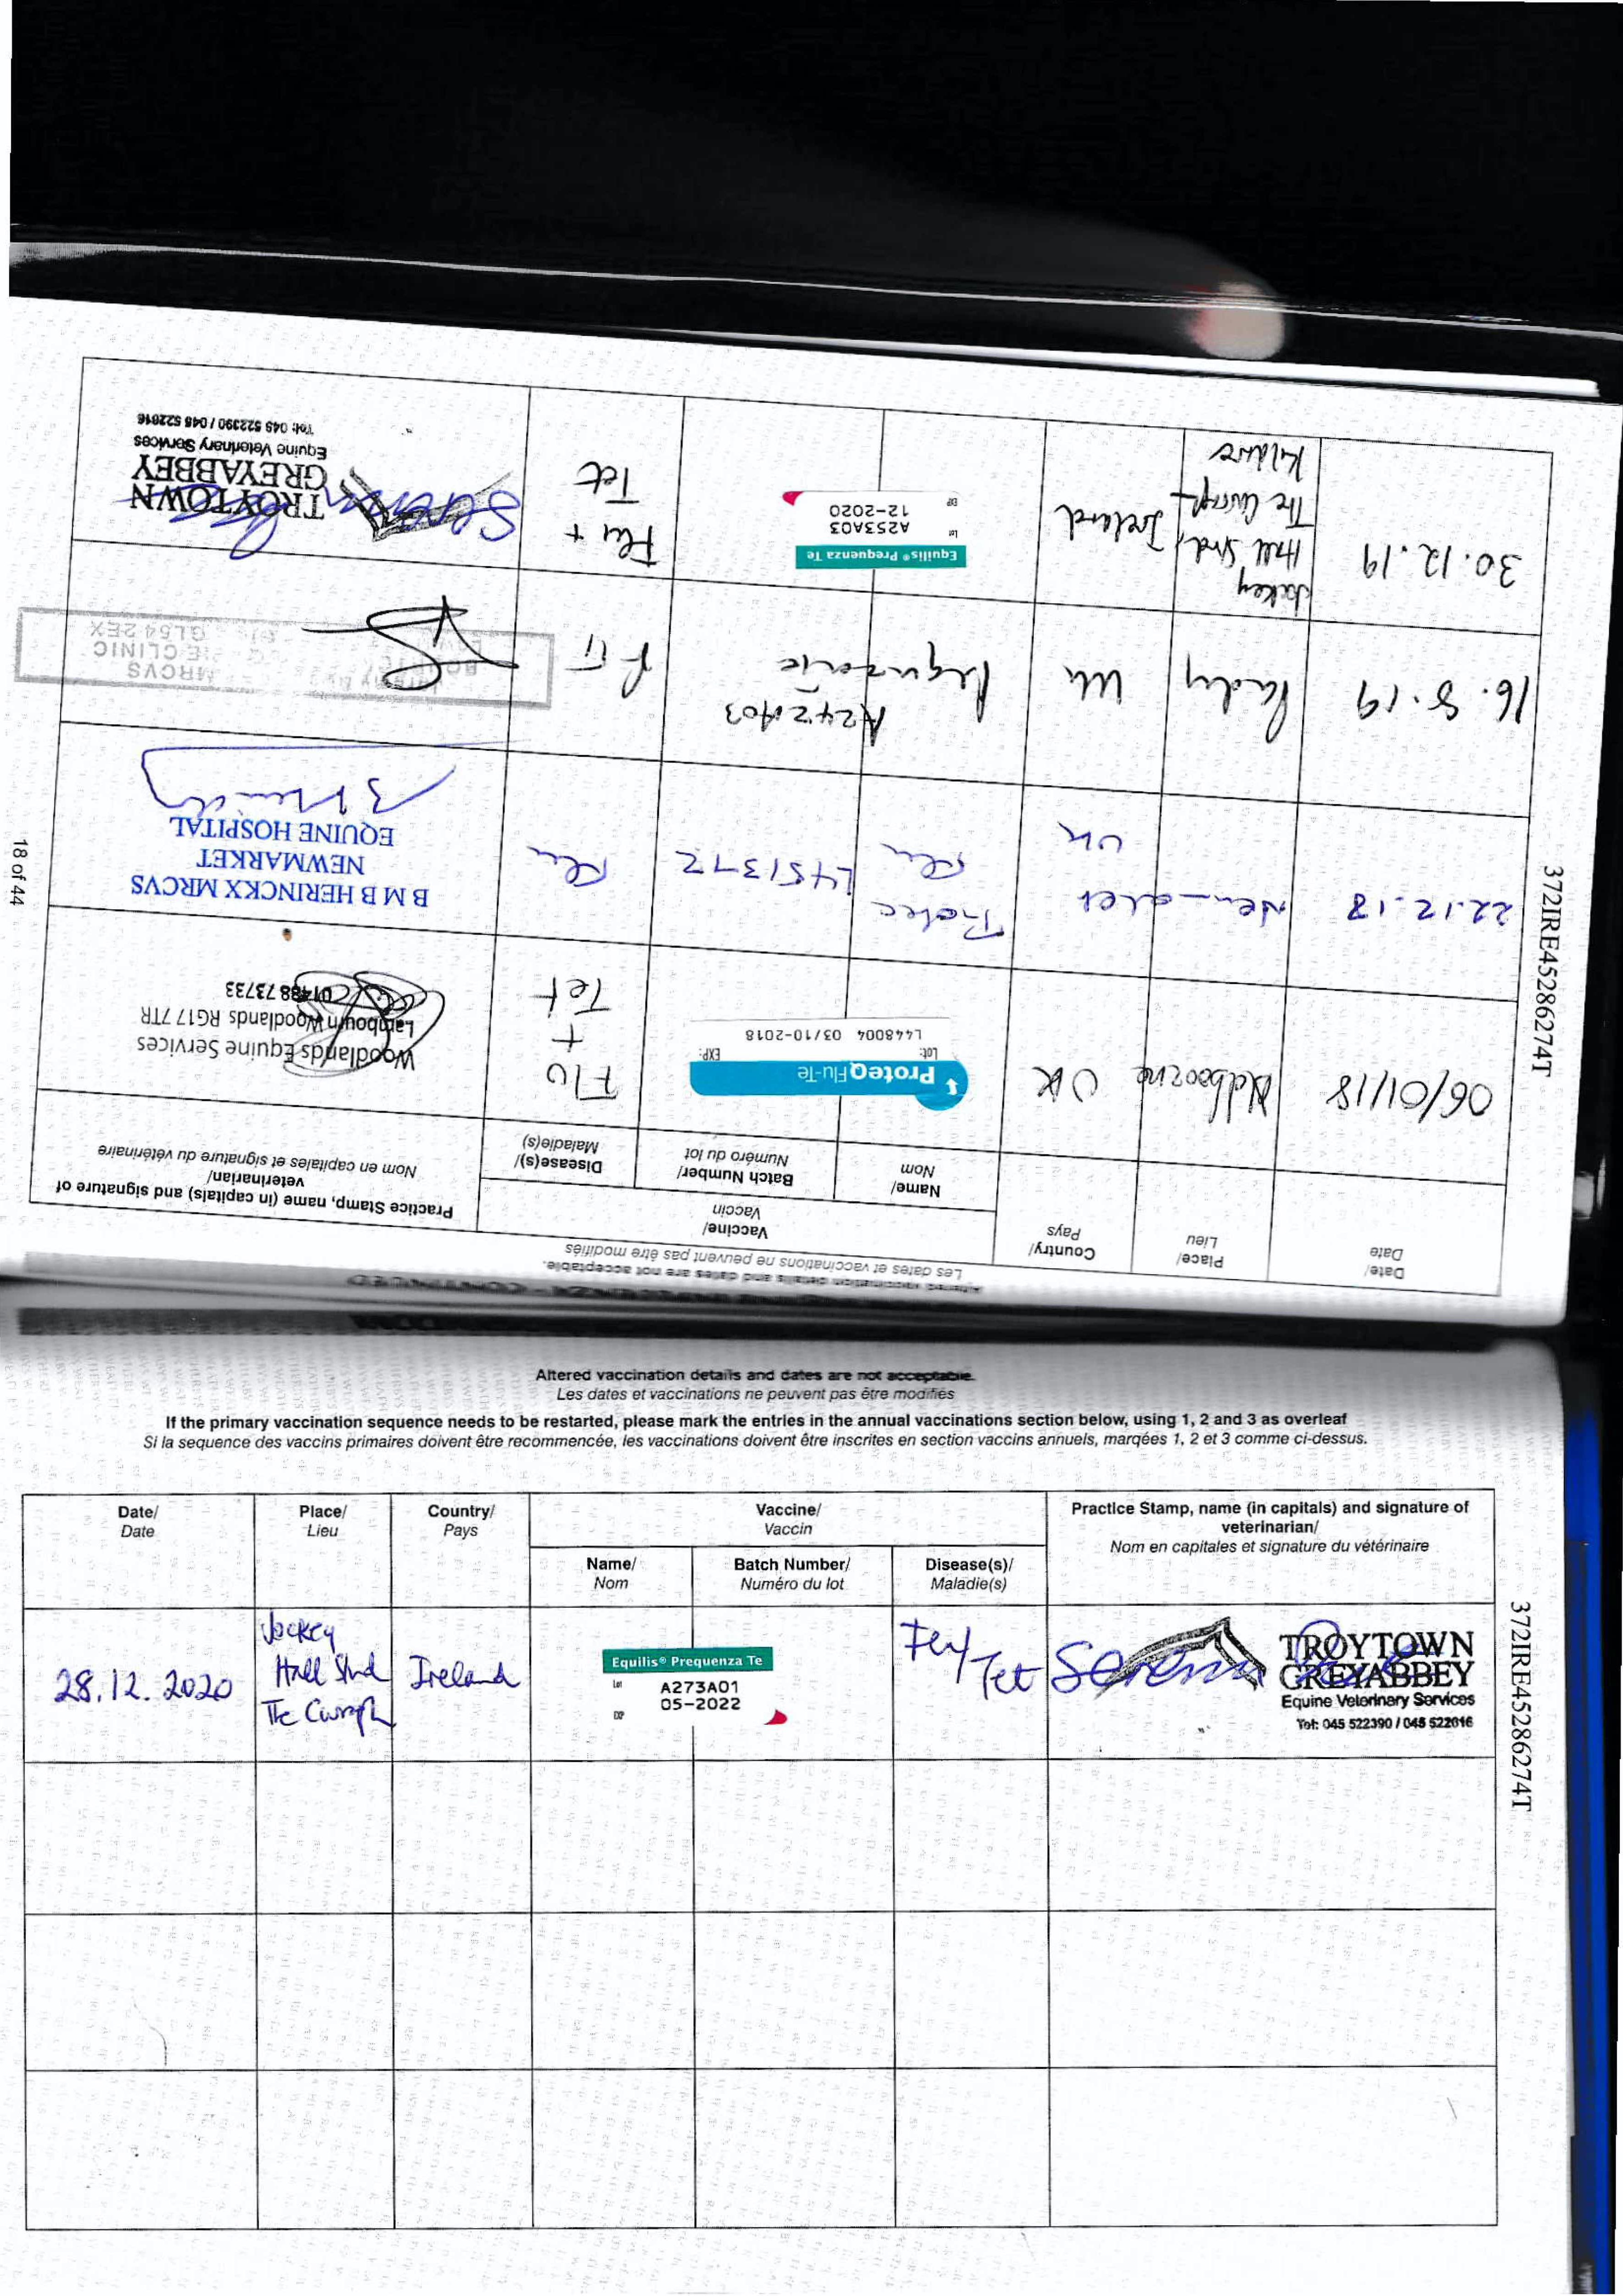 EQUINE INFLUENZA - CONTINUED
Altered vaccination details and dates are not acceptable.
Les dates et vaccinations ne peuvent pas être modifiés
Date/
Date
Place/
Lieu
Country/
Pays
Vaccine/
Vaccin
Name/
Nom
Batch Number/
Numéro du lot
Disease(s)/
Maladie(s)
Practice Stamp, name (in capitals) and signature of
veterinarian/
Nom en capitales et signature du vétérinaire
06/01/18
UK
ProteqFlu-Te
Lot:
EXP:
L448004 03/10-2018
Flu
+
Tet
Woodlands Equine Services
Lambourn Woodlands RG17 7TR
01488 73733
22.12.18
UK
Proteq
Flu
L451372
Flu
B M B HERINCKX MRCVS
NEWMARKET
EQUINE HOSPITAL
16.8.19
UK
A242A03
MRCVS
CLINIC
GL54 2EX
30.12.19
Jockey
Hall Stud,
The Curragh
Kildare
Ireland
Equilis® Prequenza Te
Lot
A253A03
EXP
12-2020
Flu +
Tet
TROYTOWN
GREYABBEY
Equine Veterinary Services
Tel: 045 522390 / 045 522616
372IRE45286274T
18 of 44
Altered vaccination details and dates are not acceptable.
Les dates et vaccinations ne peuvent pas être modifiés
If the primary vaccination sequence needs to be restarted, please mark the entries in the annual vaccinations section below, using 1, 2 and 3 as overleaf
Si la sequence des vaccins primaires doivent être recommencée, les vaccinations doivent être inscrites en section vaccins annuels, marqées 1, 2 et 3 comme ci-dessus.
Date/
Date
Place/
Lieu
Country/
Pays
Vaccine/
Vaccin
Name/
Nom
Batch Number/
Numéro du lot
Disease(s)/
Maladie(s)
Practice Stamp, name (in capitals) and signature of
veterinarian/
Nom en capitales et signature du vétérinaire
28.12.2020
Jockey
Hall Stud
The Curragh
Ireland
Equilis® Prequenza Te
Lot
A273A01
EXP
05-2022
Flu/
Tet
TROYTOWN
GREYABBEY
Equine Veterinary Services
Tel: 045 522390 / 045 522616
372IRE45286274T